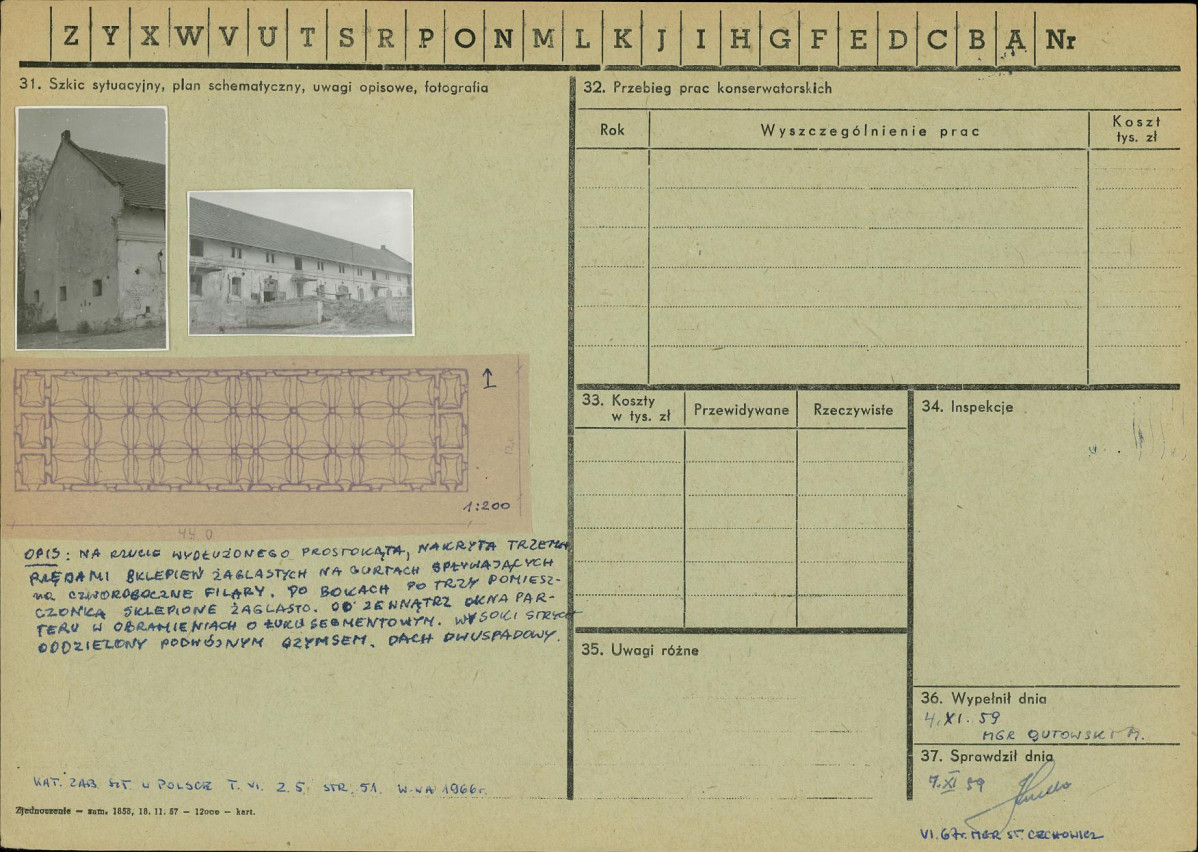 Z Y X W V U T S R P O N M L K J I H G F E D C B A Nr
31. Szkic sytuacyjny, plan schematyczny, uwagi opisowe, fotografia
1:200
44.0
OPIS: NA RZUCIE WYDŁUŻONEGO PROSTOKĄTA, NAKRYTA TRZEMA
RZĘDAMI SKLEPIEŃ ŻAGLASTYCH NA GURTACH SPŁYWAJĄCYCH
NA CZWOROBOCZNE FILARY. PO BOKACH PO TRZY POMIESZ-
CZONKA SKLEPIONE ŻAGLASTO. OD ZEWNĄTRZ OKNA PAR-
TERU W OBRAMIENIACH O ŁUKU SEGMENTOWYM. WYSOKI STRYCH
ODDZIELONY PODWÓJNYM GZYMSEM. DACH DWUSPADOWY.
KAT. ZAB. SZT. W POLSCE T. VI. Z. 5. STR. 51. W-WA 1966r.
Zjednoczenie — zam. 1858, 18. 11. 57 — 12000 — kart.
32. Przebieg prac konserwatorskich
Rok Wyszczególnienie prac Koszt
tys. zł
33. Koszty
w tys. zł
Przewidywane Rzeczywiste
34. Inspekcje
35. Uwagi różne
36. Wypełnił dnia
4. XI. 59
MGR GUTOWSKI M.
37. Sprawdził dnia
7. XI 59
VI. 67r. MGR ST. CZCHOWICZ